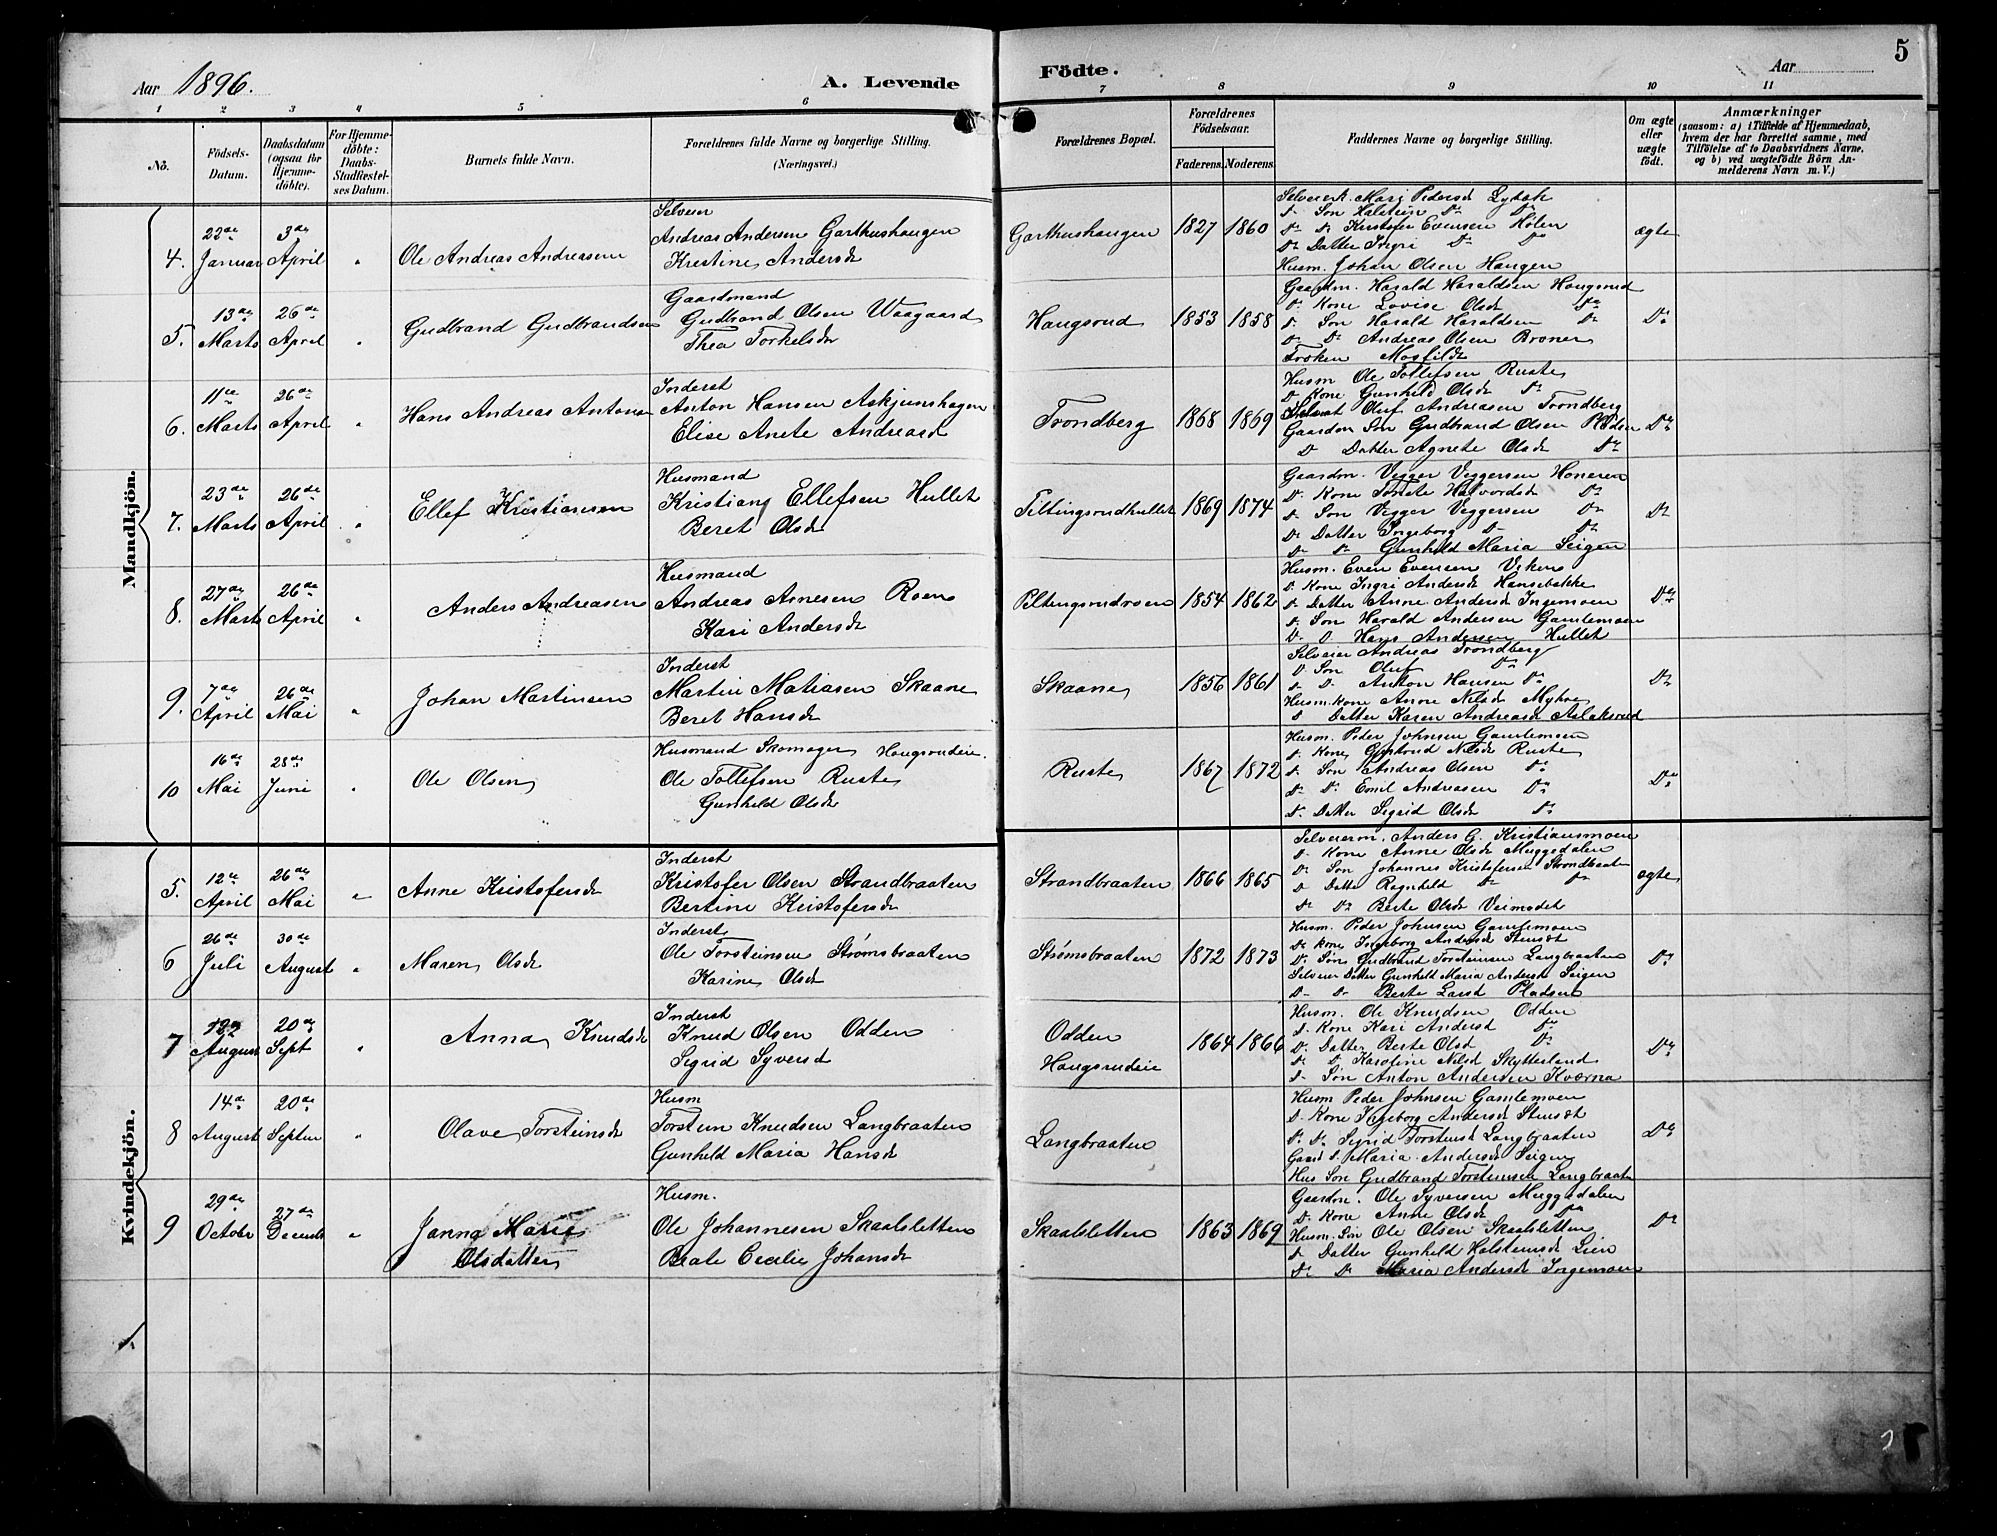 Aar 1896.
A. Levende
Födte.
Aar
5
1 2 3 4 5 6 7 8 9 10 11
No.
Födsels-Datum.
Daabsdatum (ogsaa for Hjemme-döbte).
For Hjemme-döbte: Daabs-Stadfæstel-ses Datum.
Barnets fulde Navn.
Forældrenes fulde Navne og borgerlige Stilling.
(Næringsvei.)
Forældrenes Bopæl.
Forældrenes Födselsaar.
Faderens. Moderens.
Faddernes Navne og borgerlige Stilling.
Om ægte eller uægte födt.
Anmærkninger
(saasom: a) i Tilfælde af Hjemmedaab,
hvem der har forrettet samme, med
Tilföielse af to Daabsvidners Navne,
og b) ved uægtefödte Börn An-
melderens Navn m. V.)
Mandkjön.
4. 22de Januar 3die April " Ole Andreas Andreasen
Selveier
Andreas Andersen Garthushaugen
Kristine Andersd
Garthushaugen 1827 1860
Dr Son Halstein Dr Dr
Dr Dr Kristofer Evensen Hølen
Dr Datter Ingri Dr Dr
Husm. Johan Olsen Haugen
ægte
5. 13de Marts 26de April " Gudbrand Gudbrandsen
Gaardmand
Gudbrand Olsen Waagaard
Thea Torkelsdr
Haugsrud 1853 1858
Gaardm. Harald Haraldsen Haugsrud
Dr. Kone Lovise Olsdr Dr
Dr. Son Harald Haraldsen Dr
Dr Dr Andreas Olsen
Frøken
Dr
6. 11te Marts 26de April " Hans Andreas Antonsen
Inderst
Anton Hansen Askjumshagen
Elise Anete Andreasd
Trondberg 1868 1869
Husm Ole Tollefsen Ruste
Dr Kone Gunhild Olsdr Dr
Oluf Andreasen Trondberg
Gaardm Son Gudbrand Olsen
Dr Datter Agnete Olsdr Dr
Dr
7. 23de Marts 26de April " Ellef Kristiansen
Husmand
Kristian Ellefsen Hullet
Beret Olsdr
Tiltingsrudhullet 1869 1874
Gaardm. Vegger Veggersen Honeren
Dr. Kone Tonete Halvordsdr Dr
Dr Son Vegger Veggersen Dr
Dr Datter Ingeborg Dr Dr
Dr Dr Gunhild Maria Seigen
Dr
8. 27de Marts 26de April " Anders Andreasen
Husmand
Andreas Arnesen Roen
Kari Andersdr
Peltingsrudroen 1854 1862
Husm. Even Evensen Viken
Dr Kone Ingri Andersdr Hansebakke
Dr Datter Anne Andersdr Ingemoen
Dr. Son Harald Andersen Gamlemoen
Dr Dr Hans Andersen Hullet
Dr
9. 7de April 26de Mai " Johan Martinsen
Inderst
Martin Matiasen Skaane
Beret Hansdr
Skaane 1856 1861
Selveier Andreas Trondberg
Dr Son Oluf Dr
Dr Dr Anton Hansen Dr
Husm. kone Anne Nilsd Myhre
Dr Datter Karen Andreasdr Aslaksrud
Dr
10 16de Mai 28de Juni " Ole Olsen
Husmand Skomager Haugsrudeie.
Ole Tollefsen Ruste
Gunhild Olsdr
Ruste 1867 1872
Husm. Peder Johnsen Gamlemoen
Dr. Kone Gjertrud Nilsdr Ruste
Dr Son Andreas Olsen Dr
Dr Dr Emil Andreasen Dr
Dr Datter Sigrid Olsdr Dr
Dr
Kvindekjön.
5. 12te April 26de Mai " Anne Kristofersdr
Inderst
Kristofer Olsen Strandbraaten
Bertine Kristofersdr
Strandbraaten 1866 1865
Selveierm. Anders G. Kristiansmoen
Dr Kone Anne Olsdr Muggedalen
Dr Son Johannes Kristofersen Strandbraaten
Dr Datter Ragnhild Dr Dr
Dr Dr Berte Olsdr Veimodet
ægte
6 26de Juli 30de August " Maren Olsdr
Inderst
Ole Torsteinsen Strømsbraaten
Karine Olsdr
Strømsbraaten 1872 1873
Husm. Peder Johnsen Gamlemoen
Dr kone Ingeborg Andersdr
Dr. Søn Gudbrand Torsteinsen Langbraaten
Selveier Datter Gunhild Maria Andersdr Seigen
Dr Dr Berte Larsd Pladsen
Dr
7 12te August 20de Sept " Anna Knudsdr
Inderst
Knud Olsen Odden
Sigrid Syversd
Odden
Haugsrudeie
1864 1866
Husm. Ole Knudsen Odden
Dr. Kone Kari Andersd Dr
Dr. Datter Berte Olsd Dr
Dr Dr Karoline Nilsd Skytterland
Dr Søn Anton Andersen Kværna
Dr
8 14de August 20de Septem " Olave Torsteinsdr
Husm
Torstein Knudsen Langbraaten
Gunhild Maria Hansdr
Langbraaten
Husm Peder Johnsen Gamlemoen
Dr. Kone Ingeborg Andersdr
Dr Dr Sigrid Torsteinsd Langbraaten
Gaard Dr Maria Andersdr Seigen
Hus Son Gudbrand Torsteinsen Langbraaten
Dr
9 29de October 27de Decemb " Janna Marie Olsdatter
Husm.
Ole Johannesen Skaalsletten
Beate Cecilie Johansdr
Skaalsletten 1863 1869
Gaardm. Ole Syversen Muggedalen
Dr. Kone Anne Olsdr Dr
Husm. Son Ole Olsen Skaalsletten
Dr Datter Gunhild Halsteinsdr Lien
Dr Dr Maria Andersdr Ingemoen
Dr